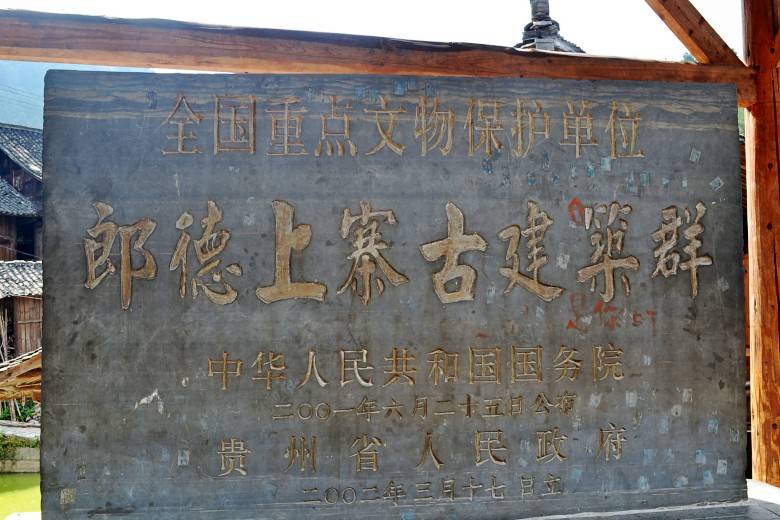 全国重点文物保护单位
郎德上寨古建築群
是你
中华人民共和国国务院
二〇〇一年六月二十五日公布
贵州省人民政府
二〇〇二年三月十七日立